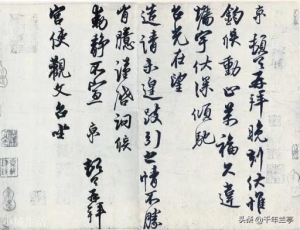 京頓首再拜晚刻伏惟
鈞候動止萬福久違
墻宇伏深傾馳
台光在望
造請未遑跂引之情不勝
胷臆謹啟詢候
動靜不宣 京 頓首再拜
宮使觀文台坐
头条 @千年兰亭